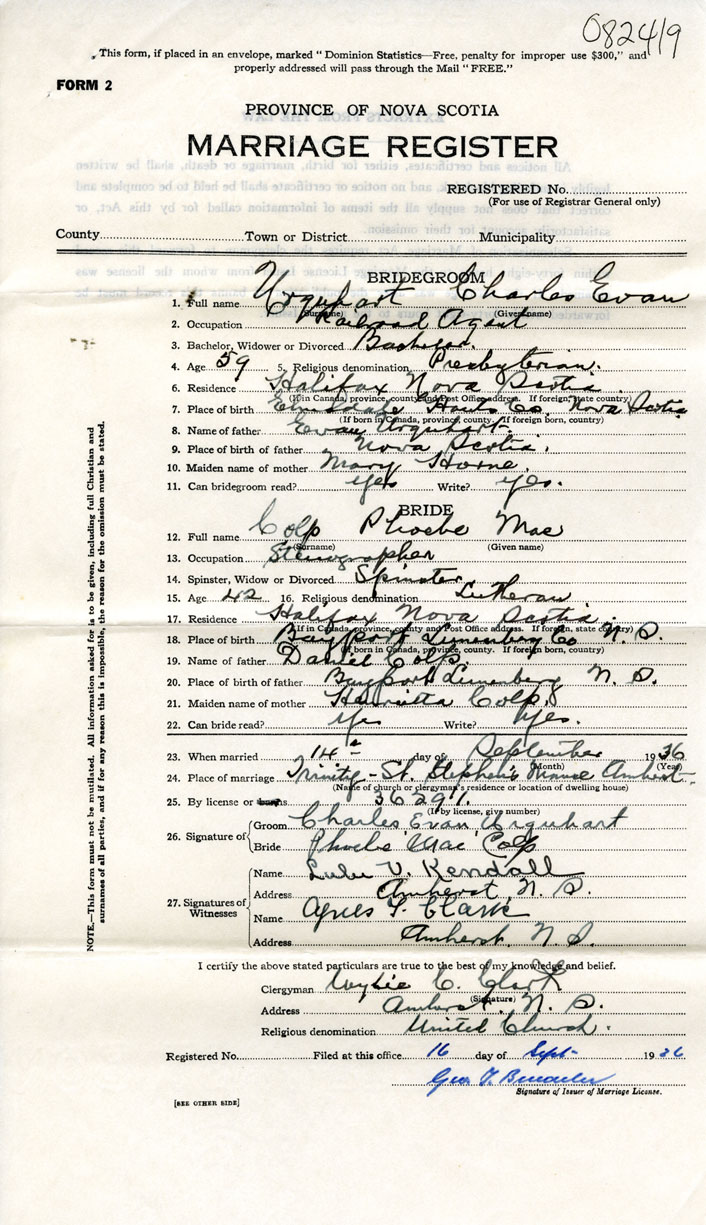 082419
This form, if placed in an envelope, marked "Dominion Statistics—Free, penalty for improper use $300," and
properly addressed will pass through the Mail "FREE."
FORM 2
PROVINCE OF NOVA SCOTIA
MARRIAGE REGISTER
REGISTERED No.
(For use of Registrar General only)
County Town or District Municipality
BRIDEGROOM
1. Full name Urquhart Charles Evan
(Surname) (Given name)
2. Occupation Railroad Agent
3. Bachelor, Widower or Divorced Bachelor.
4. Age 59 5. Religious denomination Presbyterian.
6. Residence Halifax Nova Scotia
(If in Canada, province, county and Post Office address. If foreign, state country)
7. Place of birth Elmsdale Hants Co. Nova Scotia
(If born in Canada, province, county. If foreign born, country)
8. Name of father Evan Urquhart.
9. Place of birth of father Nova Scotia.
10. Maiden name of mother Mary Horne.
11. Can bridegroom read? yes Write? yes.
BRIDE
12. Full name Colp Phoebe Mae
(Surname) (Given name)
13. Occupation Stenographer
14. Spinster, Widow or Divorced Spinster
15. Age 42 16. Religious denomination Lutheran
17. Residence Halifax Nova Scotia.
(If in Canada, province, county and Post Office address. If foreign, state country)
18. Place of birth Bayport Lunenburg Co N. S.
(If born in Canada, province, county. If foreign born, country)
19. Name of father Daniel Colp.
20. Place of birth of father Bayport Lunenburg N. S.
21. Maiden name of mother Henrietta Colp.
22. Can bride read? yes Write? yes.
23. When married 14th day of September 1936
(Month) (Year)
24. Place of marriage Trinity-St. Stephen's Manse Amherst.
(Name of church or clergyman's residence or location of dwelling house)
25. By license or banns 36291.
(If by license, give number)
26. Signature of Groom Charles Evan Urquhart
Bride Phoebe Mae Colp
27. Signatures of Witnesses Name Lulu V. Kendall
Address Amherst, N. S.
Name Agnes F. Clark
Address Amherst, N. S.
I certify the above stated particulars are true to the best of my knowledge and belief.
Clergyman Wylie C. Clark
(Signature)
Address Amherst. N. S.
Religious denomination United Church.
Registered No. Filed at this office 16 day of Sept- 1936
Geo. T.
Signature of Issuer of Marriage License.
[SEE OTHER SIDE]
NOTE.—This form must not be mutilated. All information asked for is to be given, including full Christian and
surnames of all parties, and if for any reason this is impossible, the reason for the omission must be stated.